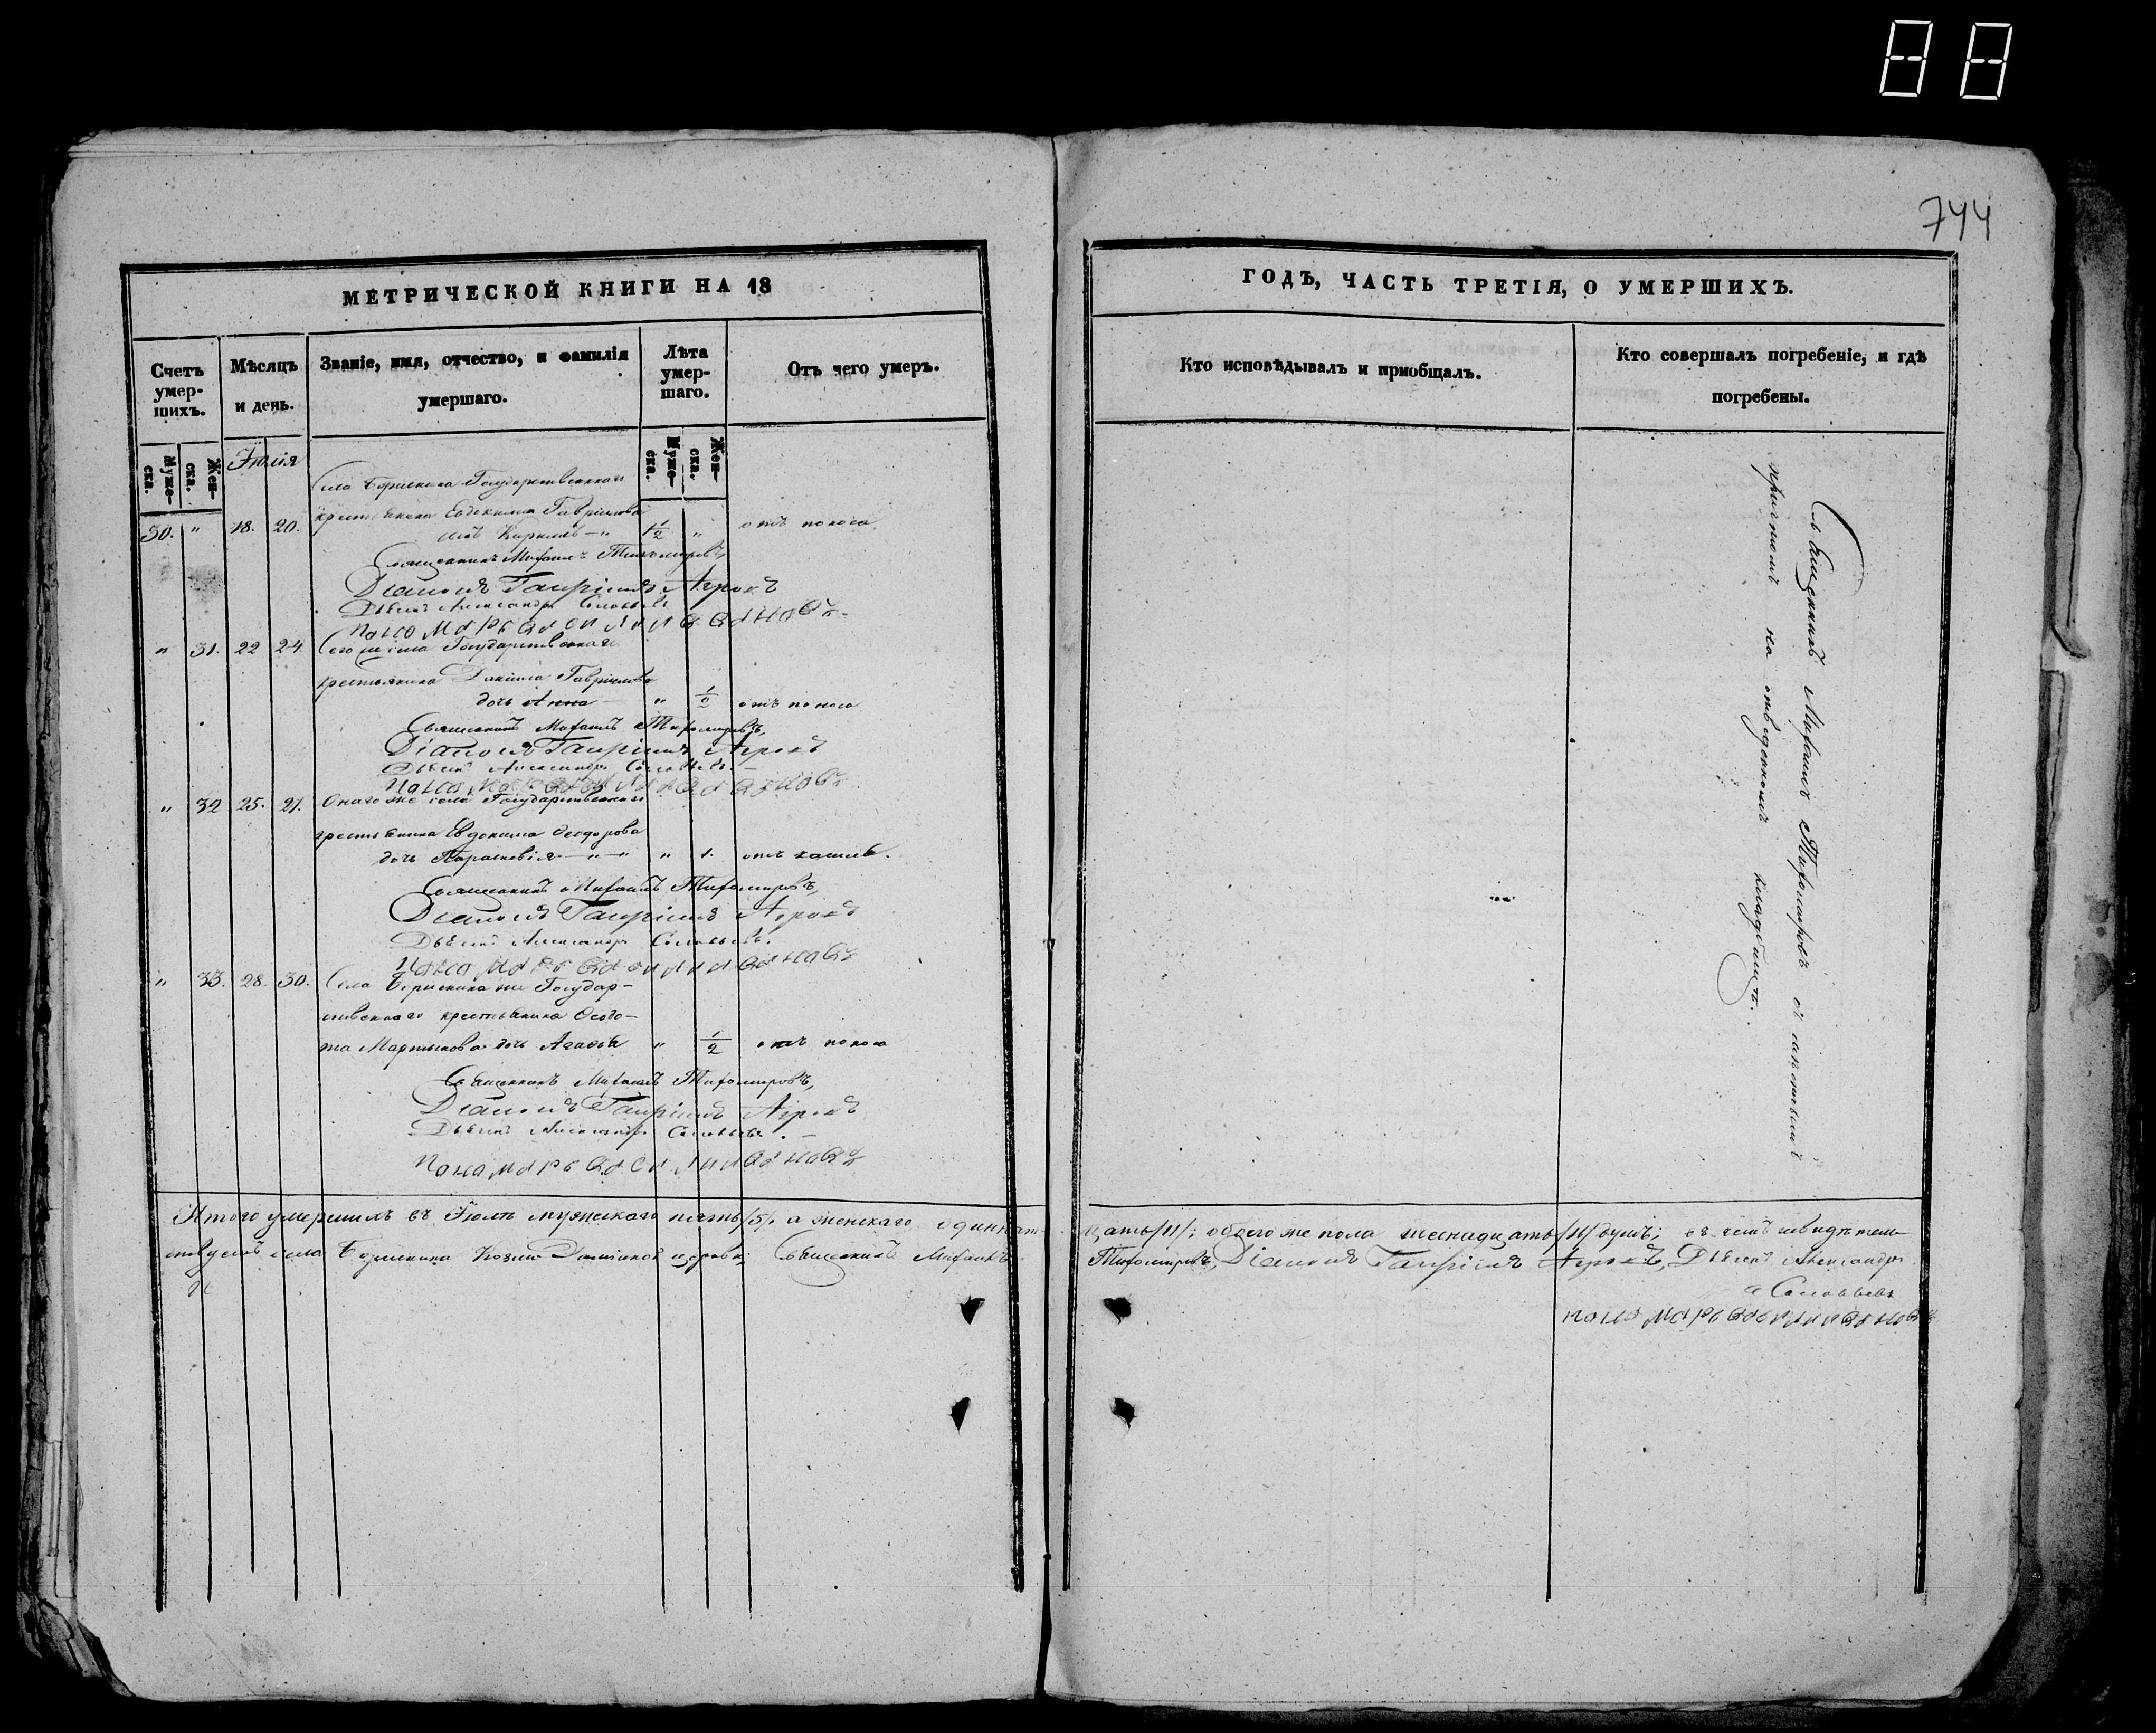 88
744
МЕТРИЧЕСКОЙ КНИГИ НА 18
ГОДЪ, ЧАСТЬ ТРЕТІЯ, О УМЕРШИХЪ.
Счетъ умер-шихъ.
Мѣсяцъ и день.
Званіе, имя, отчество, и фамилія умершаго.
Лѣта умер-шаго.
Отъ чего умеръ.
Кто исповѣдывалъ и приобщалъ.
Кто совершалъ погребеніе, и гдѣ погребены.
Муже-ска.
Жен-ска.
Муже-ска.
Жен-ска.
Іюлія
Села Государственнаго
крестьянина Евдокима Гаврилова
30. " 18. 20. сынъ Кириллъ " отъ поноса
Священникъ Михаилъ Тихомировъ,
Діаконъ Гавріилъ
Дьячекъ Александръ Соловьевъ
Пономарь Василий
" 31. 22 24 Сего же села Государственнаго
крестьянина Даніила Гаврилова
дочь Анна " 1/2 отъ поноса
Священникъ Михаилъ Тихомировъ,
Діаконъ Гавріилъ
Дьячекъ Александръ Соловьевъ.
Пономарь
" 32 25. 27. Онаго же села Государственнаго
крестьянина Евдокима Феодорова
дочь Параскевія " " 1. отъ кашля.
Священникъ Михаилъ Тихомировъ,
Діаконъ Гавріилъ
Дьячекъ Александръ Соловьевъ.
Пономарь
" 33. 28. 30. Села же Государ-
ственнаго крестьянина Феодо-
та Мартынова дочь Агафья " 1/2 отъ поноса
Священникъ Михаилъ Тихомировъ,
Діаконъ Гавріилъ
Дьячекъ Александръ Соловьевъ.
Пономарь
Священникъ Михаилъ Тихомировъ съ
причтомъ на отведенномъ кладбищѣ.
Итого умершихъ въ Іюлѣ мужескаго пять /5/. а женскаго одиннат-
цать /11/: обоего же пола шеснадцать душъ; въ чемъ свидѣтель-
ствуемъ села Козмо Даміанской церкви; Священникъ Михаилъ
Тихомировъ, Діаконъ Гавріилъ Дьячекъ Александръ
Соловьевъ
Пономарь